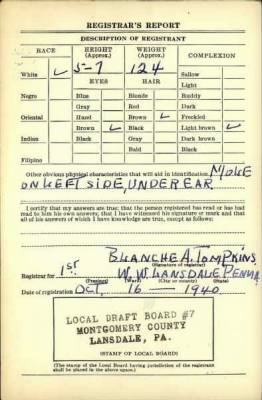 REGISTRAR'S REPORT
DESCRIPTION OF REGISTRANT
RACE HEIGHT (Approx.) WEIGHT (Approx.) COMPLEXION
White ✓ 5-7 124 Sallow
EYES HAIR Light
Negro Blue Blonde Ruddy
Gray Red Dark
Oriental Hazel Brown ✓ Freckled
Brown ✓ Black Light brown ✓
Indian Black Gray Dark brown
Bald Black
Filipino
Other obvious physical characteristics that will aid in identification MOLE
ON LEFT SIDE, UNDER EAR
I certify that my answers are true; that the person registered has read or has had
read to him his own answers; that I have witnessed his signature or mark and that
all of his answers of which I have knowledge are true, except as follows:
BLANCHE A. TOMPKINS
(Signature of registrar)
Registrar for 1ST W.W. LANSDALE PENNA
(Precinct) (Ward) (City or county) (State)
Date of registration OCT. 16 — 1940
LOCAL DRAFT BOARD #7
MONTGOMERY COUNTY
LANSDALE, PA.
(STAMP OF LOCAL BOARD)
(The stamp of the Local Board having jurisdiction of the registrant
shall be placed in the above space.)